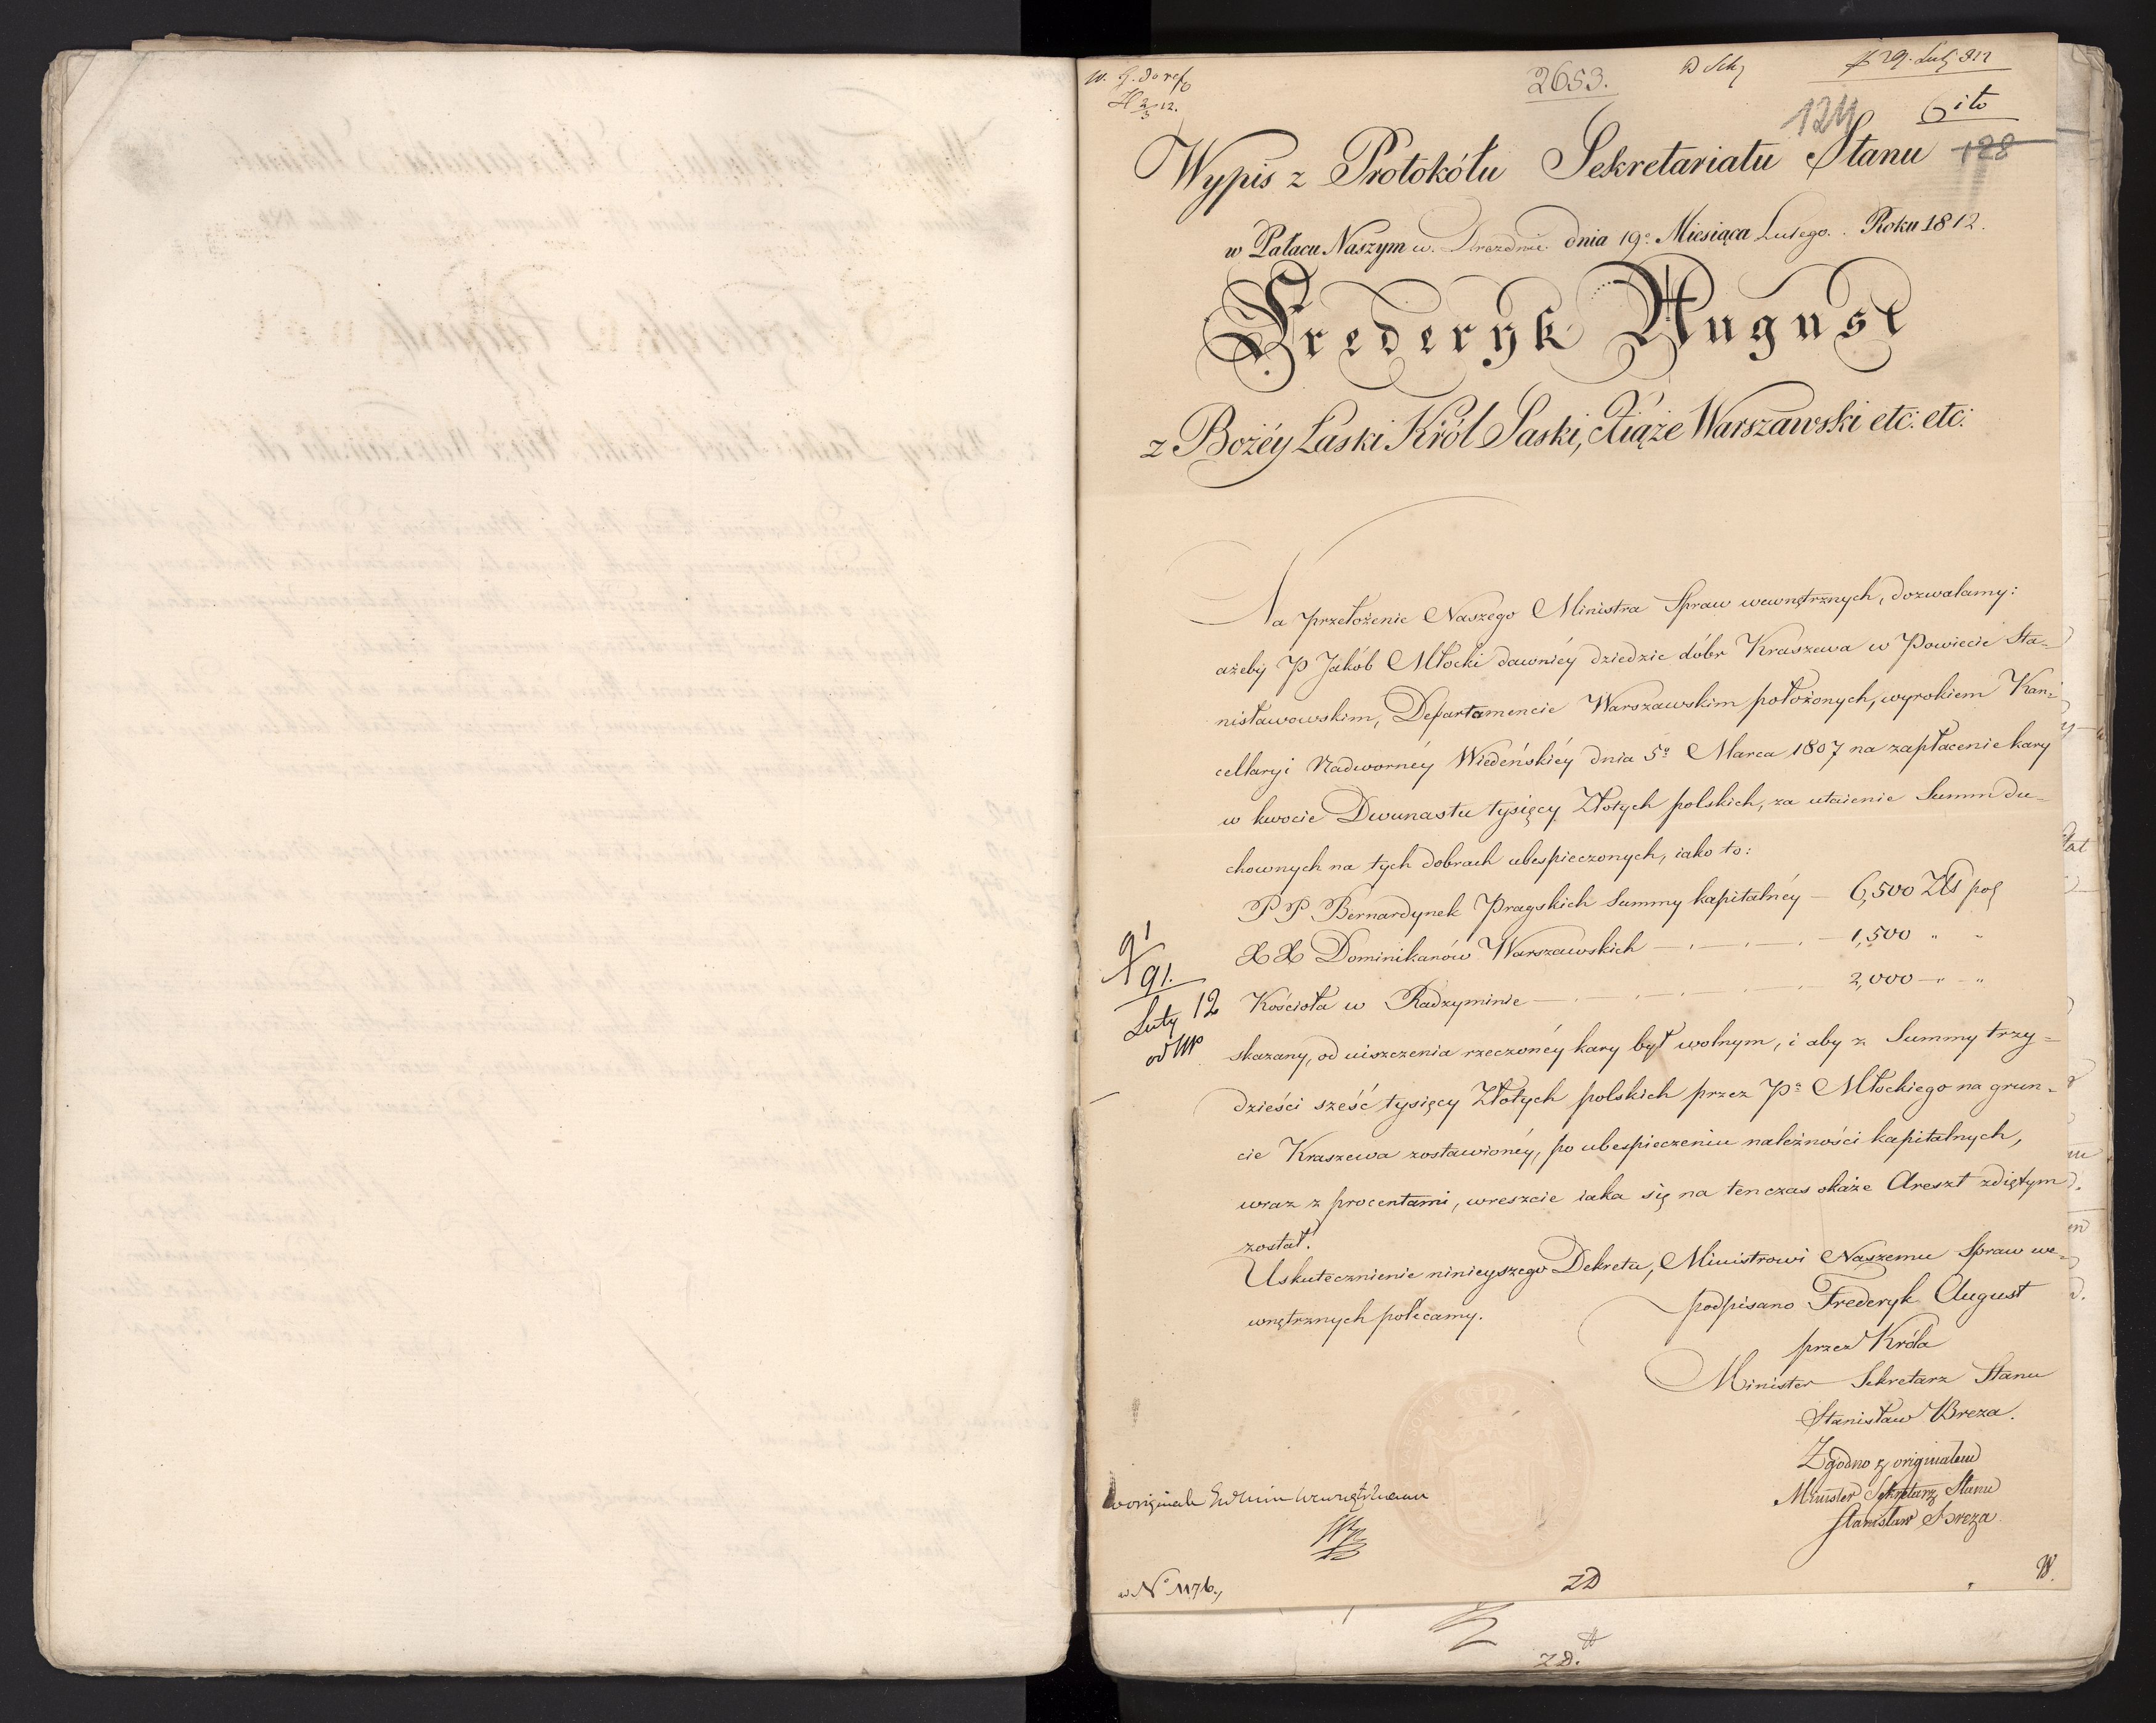 2653.
29. Luty 812
Cito
124
128
Wypis z Protokółu Sekretariatu Stanu
w Pałacu Naszym w. Dreznie dnia 19º Miesiąca Lutego. Roku 1812.
Frederyk August
z Bożéy Łaski Król Saski, Xiąże Warszawski etc: etc:
Na przełożenie Naszego Ministra Spraw wewnętrznych, dozwalamy:
ażeby P Jakób Młocki dawniéy dziedzic dóbr Kraszewa w Powiecie Sta=
nisławowskim, Departamencie Warszawskim położonych, wyrokiem Kan=
cellaryi Nadwornéy Wiedeńskiéy dnia 5º Marca 1807 na zapłacenie kary
w kwocie Dwunastu tysięcy Złotych polskich, za utaienie Summ du=
chownych na tych dobrach ubespieczonych, iako to:
P P Bernardynek Pragskich Summy kapitalnéy — 6,500 Złs pol
X X Dominikanów Warszawskich — . — . — . — 1,500 " "
Kościoła w Radzyminie — . — . — . — . — 2,000 — " — "
91
91.
Luty 12
od
skazany, od uiszczenia rzeczonéy kary był wolnym, i aby z Summy trzy=
dzieści sześć tysięcy Złotych polskich przez Pª Młockiego na grun=
cie Kraszewa zostawionéy, po ubespieczeniu należności kapitalnych,
wraz z procentami, wreszcie iaka się na ten czas okaże Areszt zdiętym
został.
Uskutecznienie ninieyszego Dekretu, Ministrowi Naszemu Spraw we=
wnętrznych polecamy.
podpisano Frederyk August
przez Króla
Minister Sekretarz Stanu
Stanisław Breza.
Zgodno z originałem
Minister Sekretarz Stanu
Stanisław Breza
w Nº 1176.
ZD
W.
ZD.